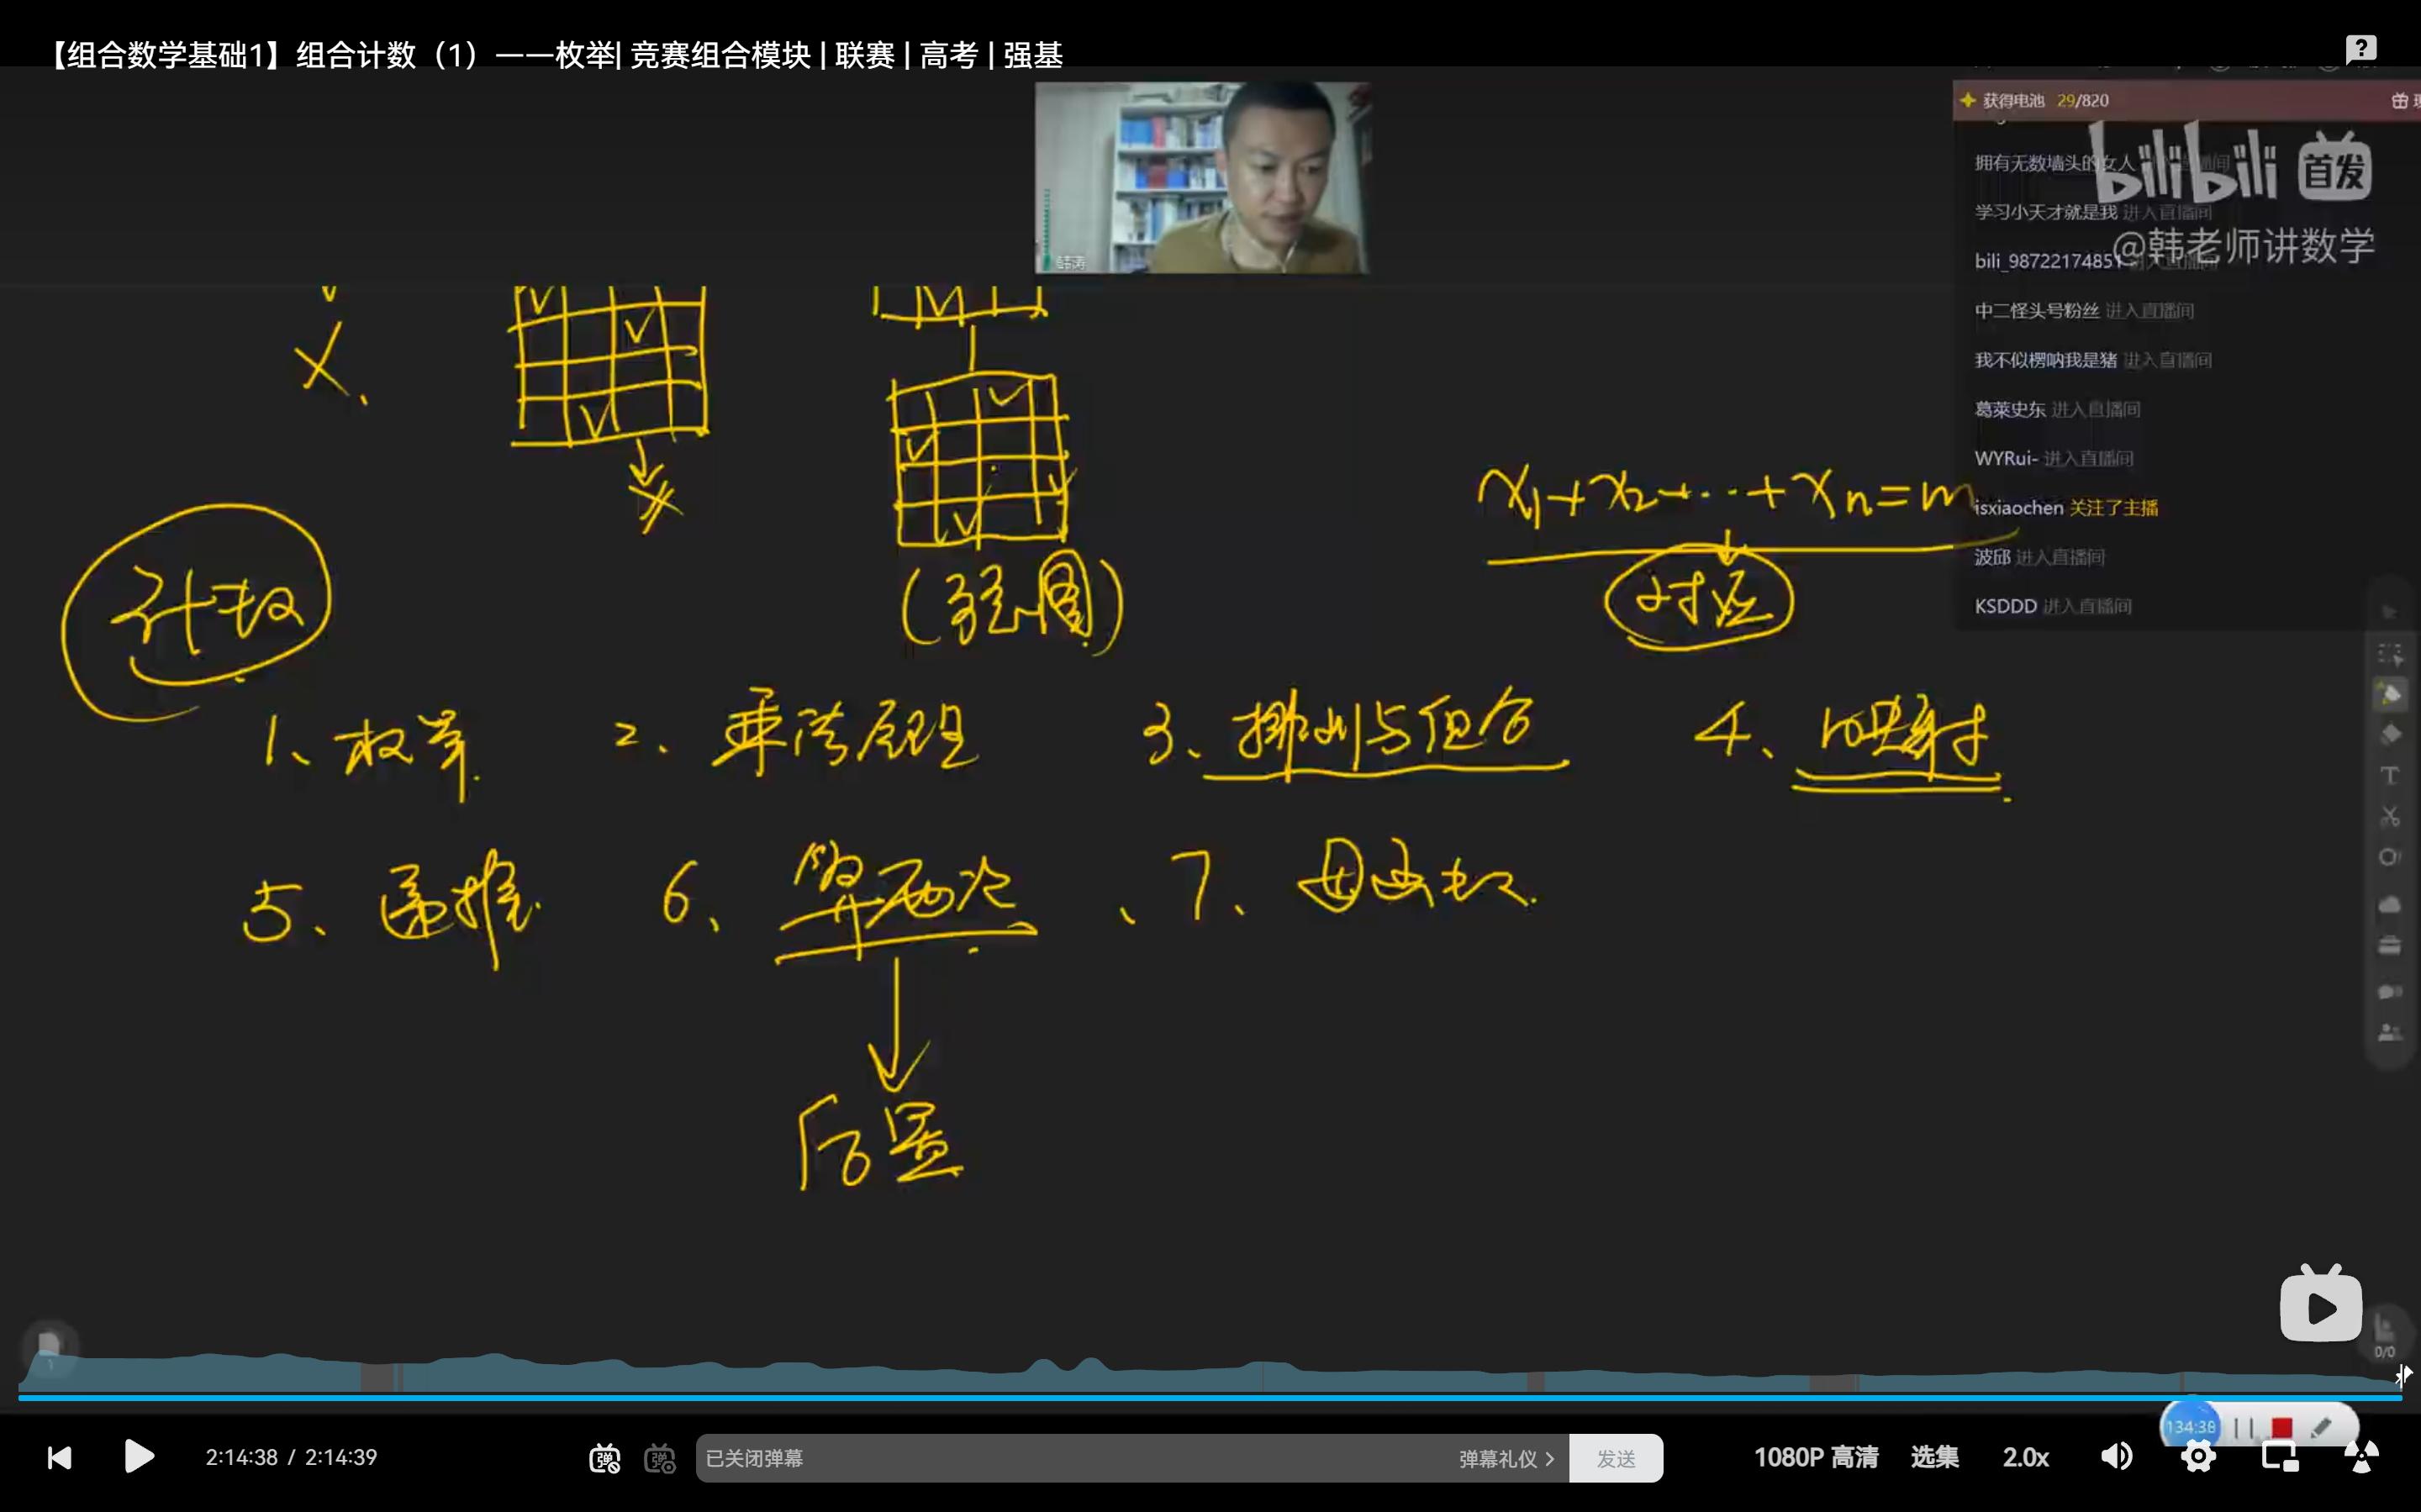 【组合数学基础1】组合计数（1）——枚举| 竞赛组合模块 | 联赛 | 高考 | 强基
获得电池 29/820
bilibili 首发
拥有无数墙头的女人
学习小天才就是我 进入直播间
@韩老师讲数学
bili_98722174851 进入直播间
中二怪头号粉丝 进入直播间
我不似楞呐我是猪 进入直播间
葛莱史东 进入直播间
WYRui- 进入直播间
isxiaochen 关注了主播
波邱 进入直播间
KSDDD 进入直播间
韩涛
x₁+x₂+…+xₙ=m
对应
计数
1、枚举.
2、乘法原理
3、排列与组合
4、映射
5、递推.
6、算两次、
7、母函数.
后置
0/0
134:38
2:14:38 / 2:14:39
已关闭弹幕
弹幕礼仪 >
发送
1080P 高清
选集
2.0x